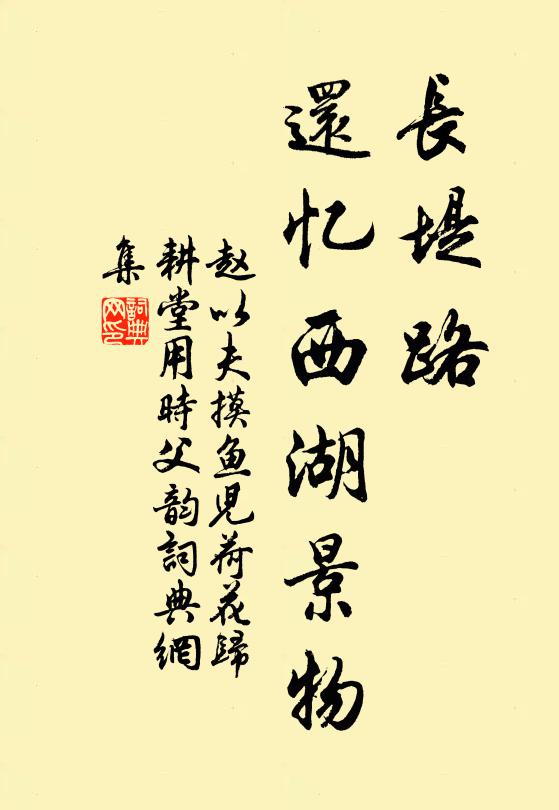 長堤路
還忆西湖景物
赵以夫摸鱼児荷花歸
耕堂用時父韵詞典網
集
詞典网印